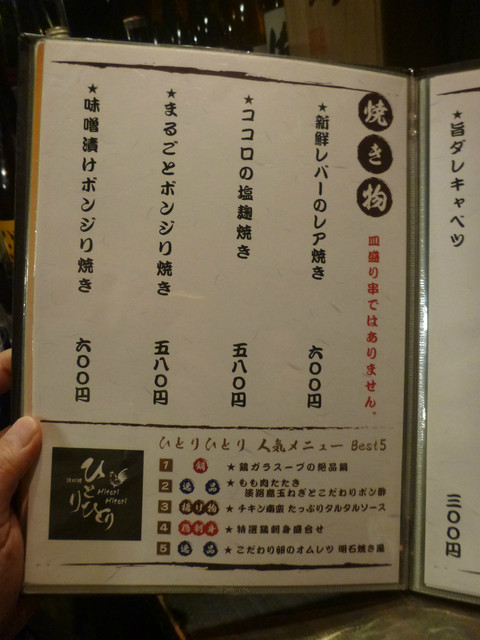 焼き物
皿盛り串ではありません。
★新鮮レバーのレア焼き 六〇〇円
★ココロの塩麹焼き 五八〇円
★まるごとボンジリ焼き 五八〇円
★味噌漬けボンジリ焼き 六〇〇円
ひとりひとり 人気メニュー Best5
1 鍋 ★鶏ガラスープの絶品鍋
2 逸品 ★もも肉たたき
淡路島玉ねぎとこだわりポン酢
3 揚げ物 ★チキン南蛮 たっぷりタルタルソース
4 鶏刺身 ★特選鶏刺身盛合せ
5 逸品 ★こだわり卵のオムレツ 明石焼き風
ひとりひとり
Hitori
Hitori
★旨ダレキャベツ 三〇〇円